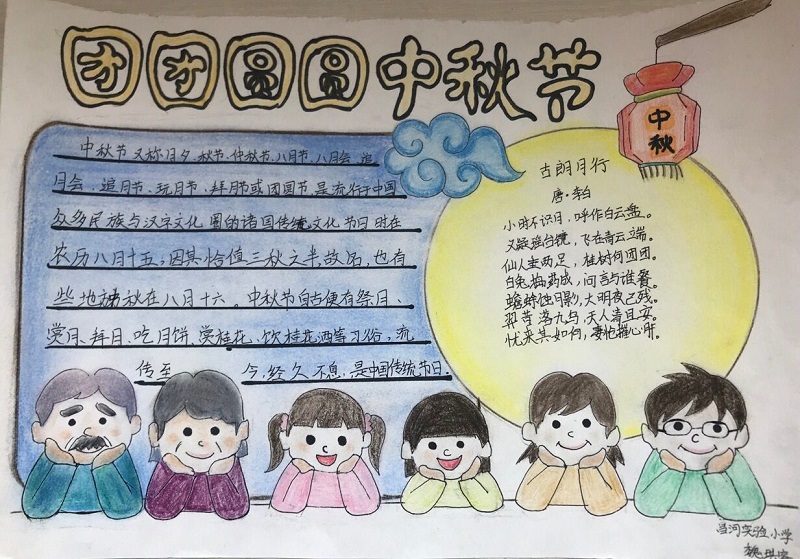 团团圆圆中秋节
中秋
中秋节又称月夕、秋节、仲秋节、八月节、八月会、追
月会、追月节、玩月节、拜月节或团圆节,是流行于中国
众多民族与汉字文化圈的诸国传统文化节日时在
农历八月十五;因其恰值三秋之半,故名,也有
些地神秋在八月十六。中秋节自古便有祭月、
赏月、拜月、吃月饼、赏桂花、饮桂花酒等习俗,流
传至今,经久不息。是中国传统节日.
古朗月行
唐·李白
小时不识月,呼作白云盘。
又疑瑶台镜,飞在青云端。
仙人垂两足,桂树何团团。
白兔捣药成,问言与谁餐。
蟾蜍蚀月影,大明夜已残。
羿昔落九乌,天人清且安。
忧来其如何,妻怆摧心肝。
河实验小学
魏琪